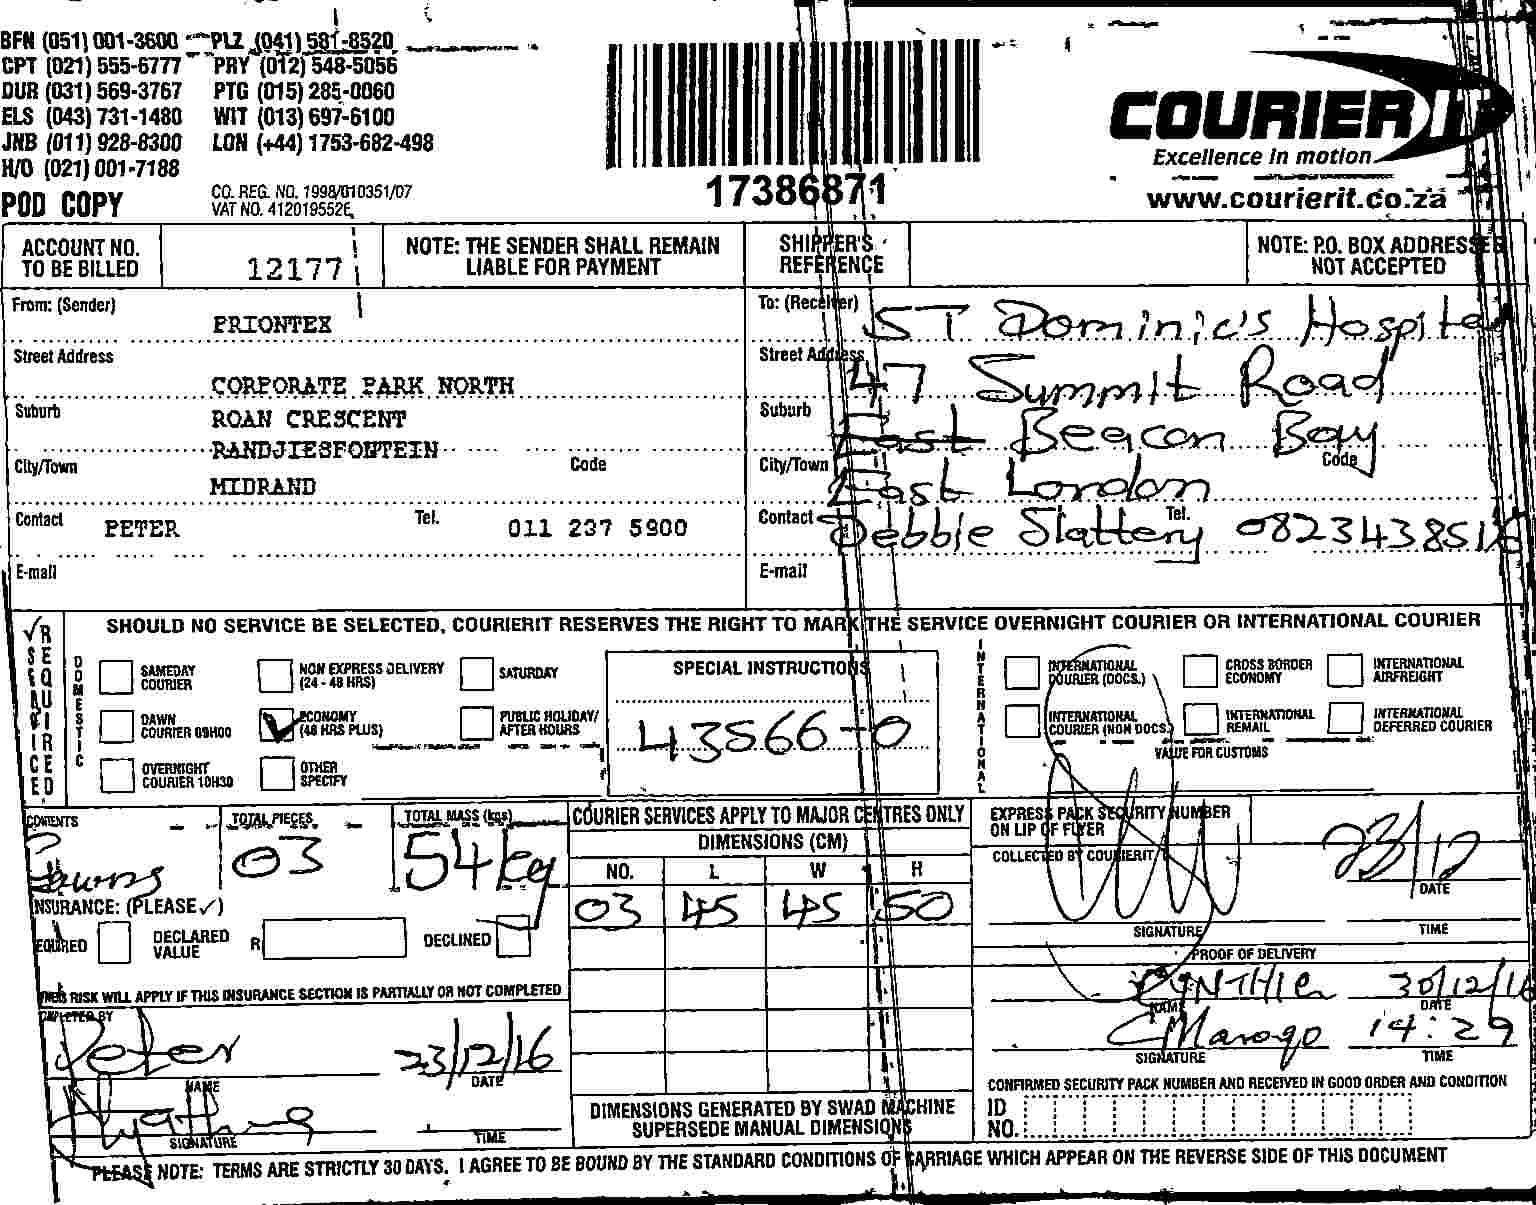 BFN (051) 001-3600 PLZ (041) 581-8520
CPT (021) 555-6777 PRY (012) 548-5056
DUR (031) 569-3767 PTG (015) 285-0060
ELS (043) 731-1480 WIT (013) 697-6100
JNB (011) 928-8300 LON (+44) 1753-682-498
H/O (021) 001-7188
POD COPY
CO. REG. NO. 1998/010351/07
VAT NO. 4120195526
17386871
COURIERIT
Excellence in motion
www.courierit.co.za
ACCOUNT NO. TO BE BILLED 12177
NOTE: THE SENDER SHALL REMAIN LIABLE FOR PAYMENT
SHIPPER'S REFERENCE
NOTE: P.O. BOX ADDRESSES NOT ACCEPTED
From: (Sender) PRIONTEX
Street Address CORPORATE PARK NORTH
Suburb ROAN CRESCENT
RANDJIESFONTEIN
City/Town MIDRAND Code
Contact PETER Tel. 011 237 5900
E-mail
To: (Receiver) ST Dominic's Hospital
Street Address 47 Summit Road
Suburb East Beacon Bay
City/Town East London Code
Contact Debbie Slattery Tel. 0823438516
E-mail
√ SERVICE REQUIRED
SHOULD NO SERVICE BE SELECTED, COURIERIT RESERVES THE RIGHT TO MARK THE SERVICE OVERNIGHT COURIER OR INTERNATIONAL COURIER
DOMESTIC
SAMEDAY COURIER
NON EXPRESS DELIVERY (24 - 48 HRS)
SATURDAY
DAWN COURIER 09H00
ECONOMY (48 HRS PLUS)
PUBLIC HOLIDAY/ AFTER HOURS
OVERNIGHT COURIER 10H30
OTHER SPECIFY
SPECIAL INSTRUCTIONS
43566-0
INTERNATIONAL
INTERNATIONAL COURIER (DOCS.)
CROSS BORDER ECONOMY
INTERNATIONAL AIRFREIGHT
INTERNATIONAL COURIER (NON DOCS.)
INTERNATIONAL REMAIL
INTERNATIONAL DEFERRED COURIER
VALUE FOR CUSTOMS
CONTENTS Gowns
TOTAL PIECES 03
TOTAL MASS (kgs) 54kg
INSURANCE: (PLEASE √)
REQUIRED DECLARED VALUE R DECLINED
RISK WILL APPLY IF THIS INSURANCE SECTION IS PARTIALLY OR NOT COMPLETED
COMPLETED BY
Peter 23/12/16
NAME DATE
SIGNATURE TIME
COURIER SERVICES APPLY TO MAJOR CENTRES ONLY
DIMENSIONS (CM)
NO. L W H
03 45 45 50
DIMENSIONS GENERATED BY SWAD MACHINE SUPERSEDE MANUAL DIMENSIONS
EXPRESS PACK SECURITY NUMBER ON LIP OF FLYER
COLLECTED BY COURIERIT
23/12
DATE
SIGNATURE TIME
PROOF OF DELIVERY
CYNTHIA 30/12/16
NAME DATE
CMarogo 14:29
SIGNATURE TIME
CONFIRMED SECURITY PACK NUMBER AND RECEIVED IN GOOD ORDER AND CONDITION
ID NO.
PLEASE NOTE: TERMS ARE STRICTLY 30 DAYS. I AGREE TO BE BOUND BY THE STANDARD CONDITIONS OF CARRIAGE WHICH APPEAR ON THE REVERSE SIDE OF THIS DOCUMENT